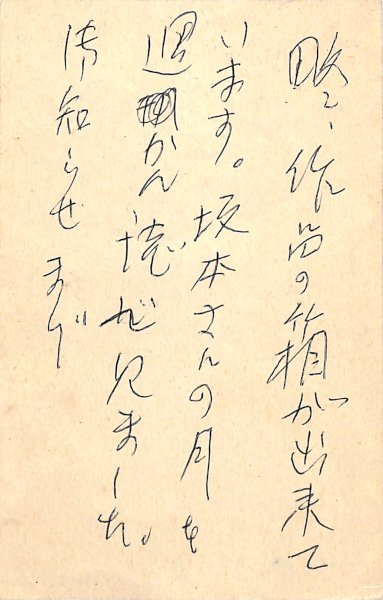 略、作品の箱が出来て
います。坂本さんの月も
週かん誌で見ました。
御知らせまで